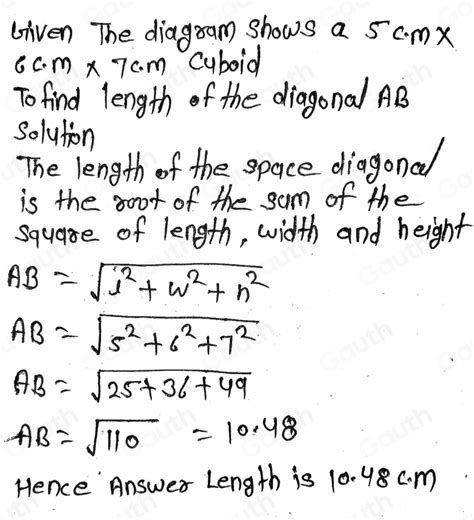 Given The diagram shows a 5 c.m x
6 c.m x 7 c.m Cuboid
To find length of the diagonal AB
Solution
The length of the space diagonal
is the root of the sum of the
square of length, width and height
AB = √l²+w²+h²
AB = √5²+6²+7²
AB = √25+36+49
AB = √110 = 10.48
Hence Answer Length is 10.48 c.m)